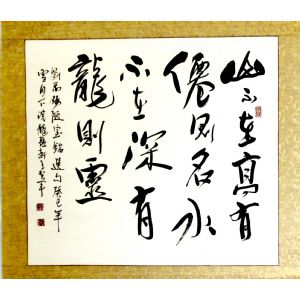 山不在高有
僊則名水
不在深有
龍則靈
劉禹錫陋室銘選句癸巳年
雪月下浣